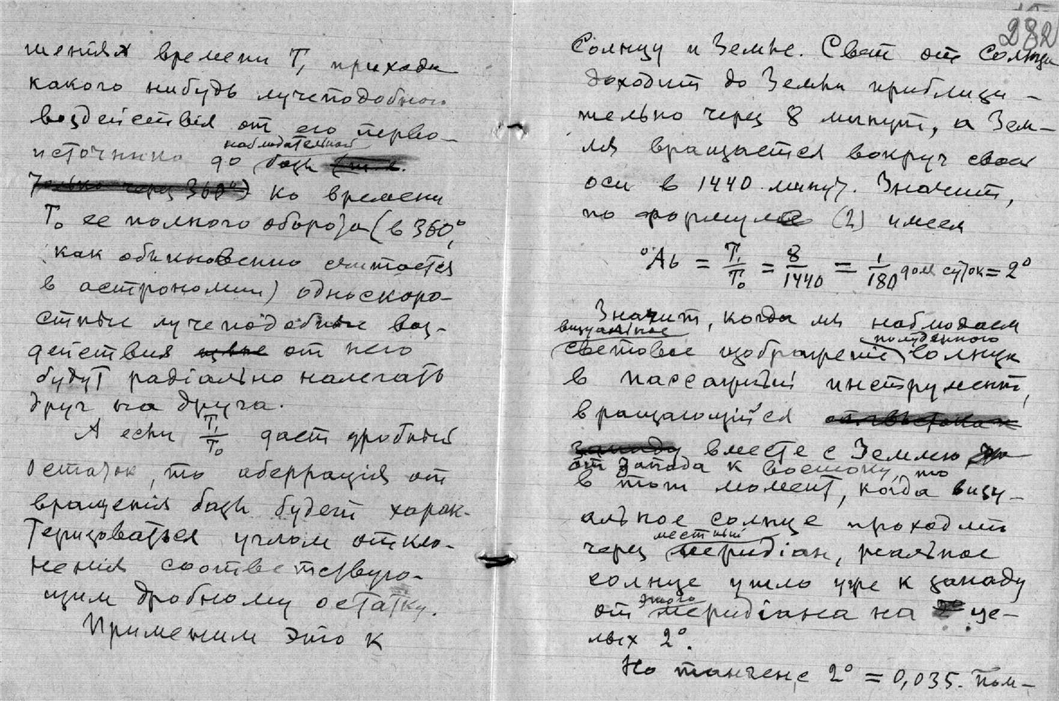 шеніях времени T₁ прихода
какого нибудь лучеподобного
воздействія от его перво-
источника до наблюдательной базы
ко времени
T₀ ее полного оборота (в 360°,
как обыкновенно считается
в астрономии) односкоро-
стные лучеподобные воз-
действія от него
будут радіально налегать
друг на друга.
А если T₁/T₀ даст дробный
остаток, то аберрація от
вращенія базы будет харак-
теризоваться углом откло-
ненія соответствую-
щим дробному остатку.
Применим это к
282
Солнцу и Земле. Свет от Солнца
доходит до Земли приблизи-
тельно через 8 минут, а Зем-
ля вращается вокруг своей
оси в 1440 минут. Значит,
по формуле (2) имеем
°Аь = T₁/T₀ = 8/1440 = 1/180 доли суток = 2°
Значит, когда мы наблюдаем
визуальное
световое изображеніе полуденного солнца
в пассажный инструмент,
вращающійся
вместе с Землею
от запада к востоку, то
в тот момент, когда визу-
альное солнце проходит
через местный меридіан, реальное
солнце ушло уже к западу
от этого меридіана на це-
лых 2°.
Но тангенс 2° = 0,035. Пом-